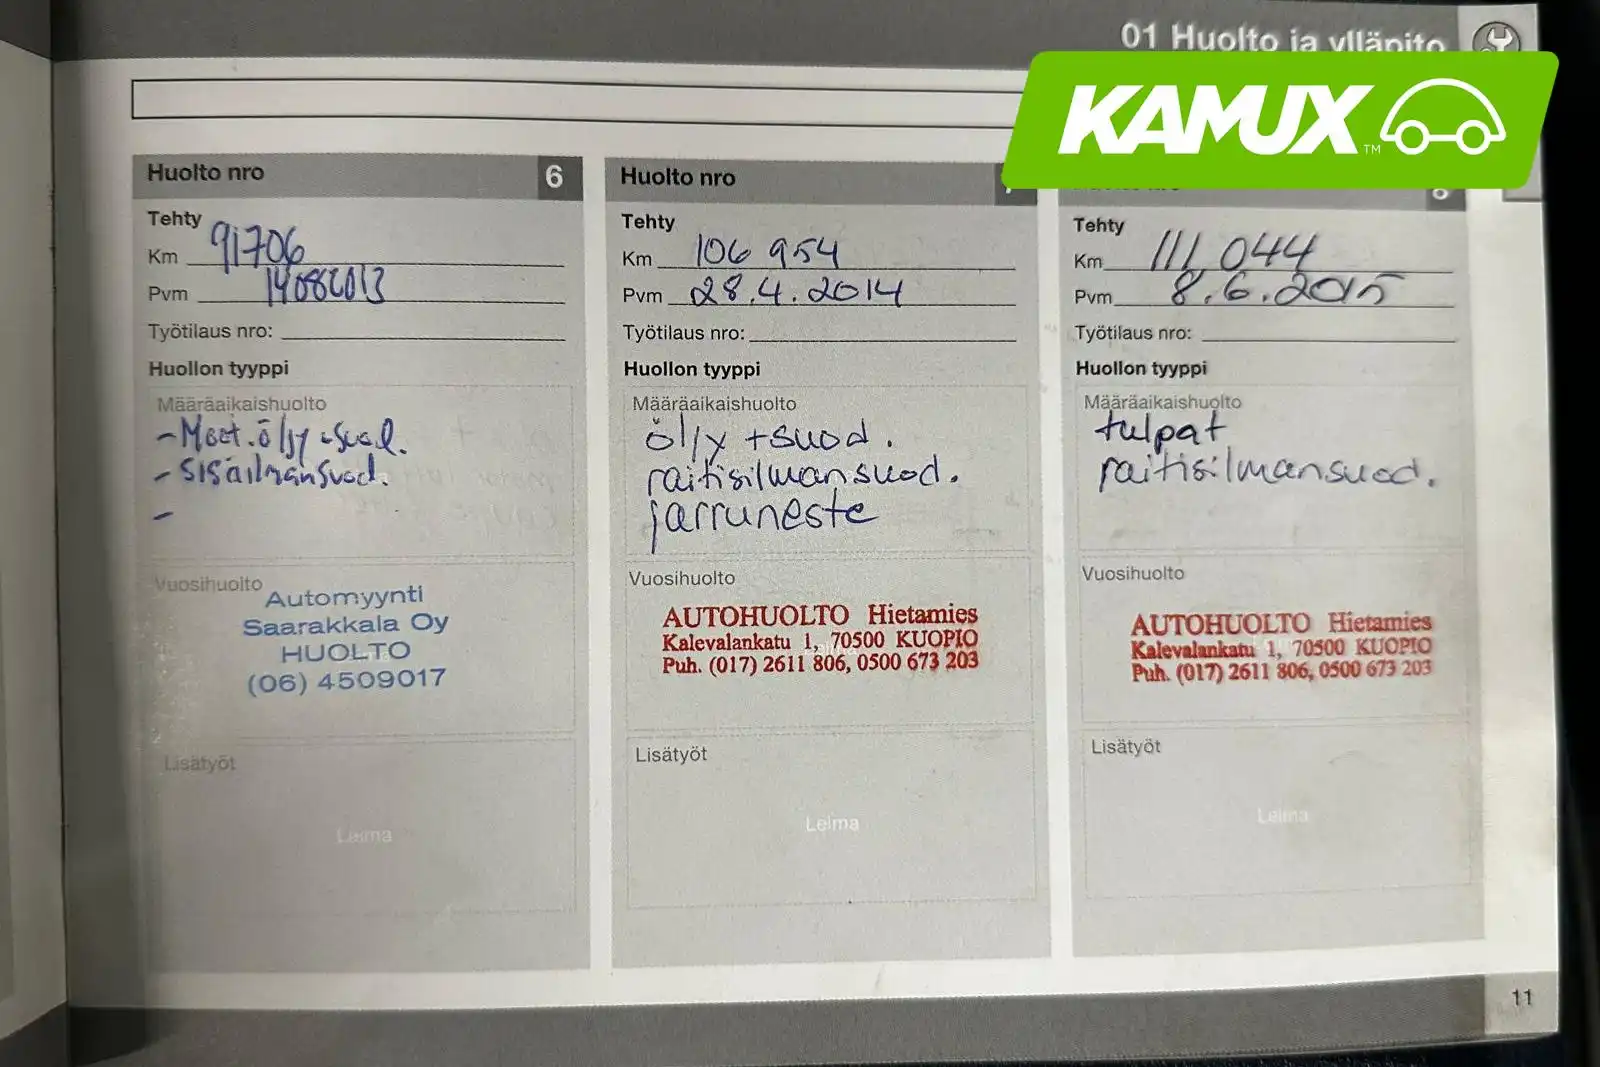 01 Huolto ja ylläpito
KAMUX™
Huolto nro 6
Tehty
Km 91706
Pvm 14082013
Työtilaus nro:
Huollon tyyppi
Määräaikaishuolto
- Moot.öljy +suod.
- sisäilmansuod.
-
Vuosihuolto
Automyynti
Saarakkala Oy
HUOLTO
(06) 4509017
Lisätyöt
Leima
Huolto nro
Tehty
Km 106 954
Pvm 28.4.2014
Työtilaus nro:
Huollon tyyppi
Määräaikaishuolto
öljy +suod.
raitisilmansuod.
jarruneste
Vuosihuolto
AUTOHUOLTO Hietamies
Kalevalankatu 1, 70500 KUOPIO
Puh. (017) 2611 806, 0500 673 203
Lisätyöt
Leima
8
Tehty
Km 111 044
Pvm 8.6.2015
Työtilaus nro:
Huollon tyyppi
Määräaikaishuolto
tulpat
raitisilmansuod.
Vuosihuolto
AUTOHUOLTO Hietamies
Kalevalankatu 1, 70500 KUOPIO
Puh. (017) 2611 806, 0500 673 203
Lisätyöt
Leima
11